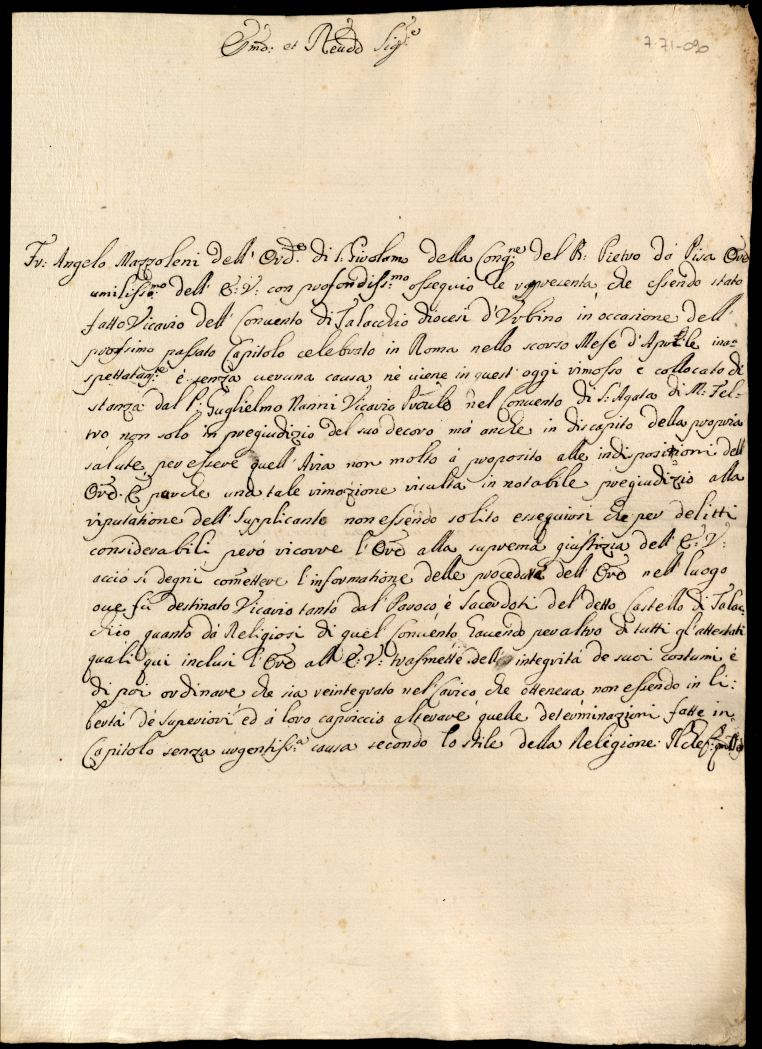 Emo: et Reudo Sig:re
7-71-090
Fr: Angelo Mazzoleni dell' Ord:e di S: Girolamo della Cong:ne del B: Pietro da Pisa Ore
umilissi:mo dell' E: V: con profondiss:mo ossequio le rapresenta, che essendo stato
fatto Vicario dell' Conuento di Talacchio diocesi d'Vrbino in occasione dell'
prossimo passato Capitolo celebrato in Roma nello scorso Mese d'Aprile ina=
spettatam:e è senza ueruna causa nè uiene in quest' oggi rimosso e collocato di
stanza dal P: Guglielmo Nanni Vicario Proule nel Conuento di S: Agata di M: Fel=
tro non solo in pregiudizio del suo decoro mà anche in discapito della propria
salute, per essere quell' Aria non molto à proposito alle indisposizioni dell'
Ore. E perche una tale rimozione risulta in notabile pregiudizio alla
riputatione dell' Supplicante non essendo solito esseguirsi che per delitti
considerabili però ricorre l'Ore alla suprema giustizia dell' E: V:
acciò si degni comettere l'informatione delle procedure dell' Ore nel luogo
oue fù destinato Vicario tanto dal Paroco è Sacerdoti del detto Castello di Talac=
chio quanto dà Religiosi di quel Conuento hauendo per altro di tutti gl'attestati
quali qui inclusi l'Ore all' E: V: trasmette dell' integrità de suoi costumi è
di poi ordinare che sia reintegrato nel carico che otteneua non essendo in li=
bertà de superiori ed à loro capriccio alterare quelle determinazioni fatte in
Capitolo senza urgentiss:a causa secondo lo stile della Religione.